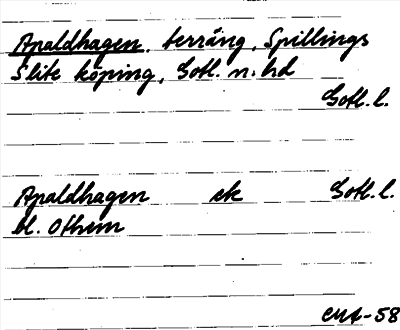 Apaldhagen, terräng, Spillings
Slite köping, Gotl. n. hd
Gotl. l.
Apaldhagen ek Gotl. l.
bl. Othem
-58